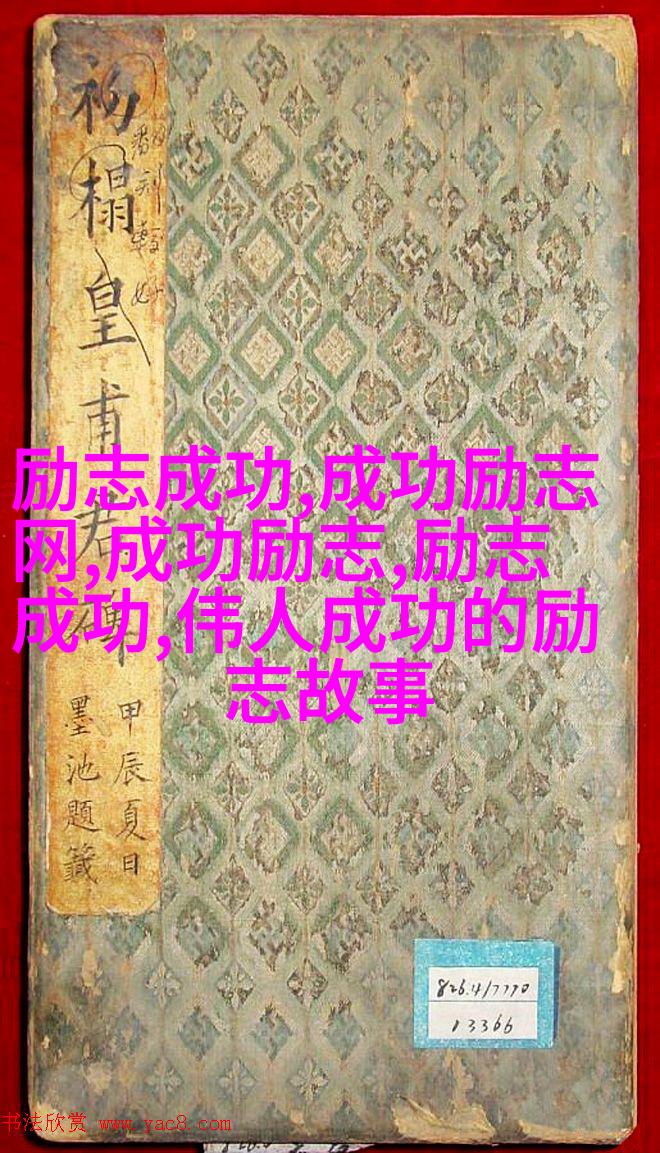 初榻皇甫君碑
翻刻較好
甲辰夏日
墨池題籤
励志成功,成功励志
网,成功励志,励志
成功,伟人成功的励
志故事
826.4/7770
13366
书法欣赏 www.yac8.com